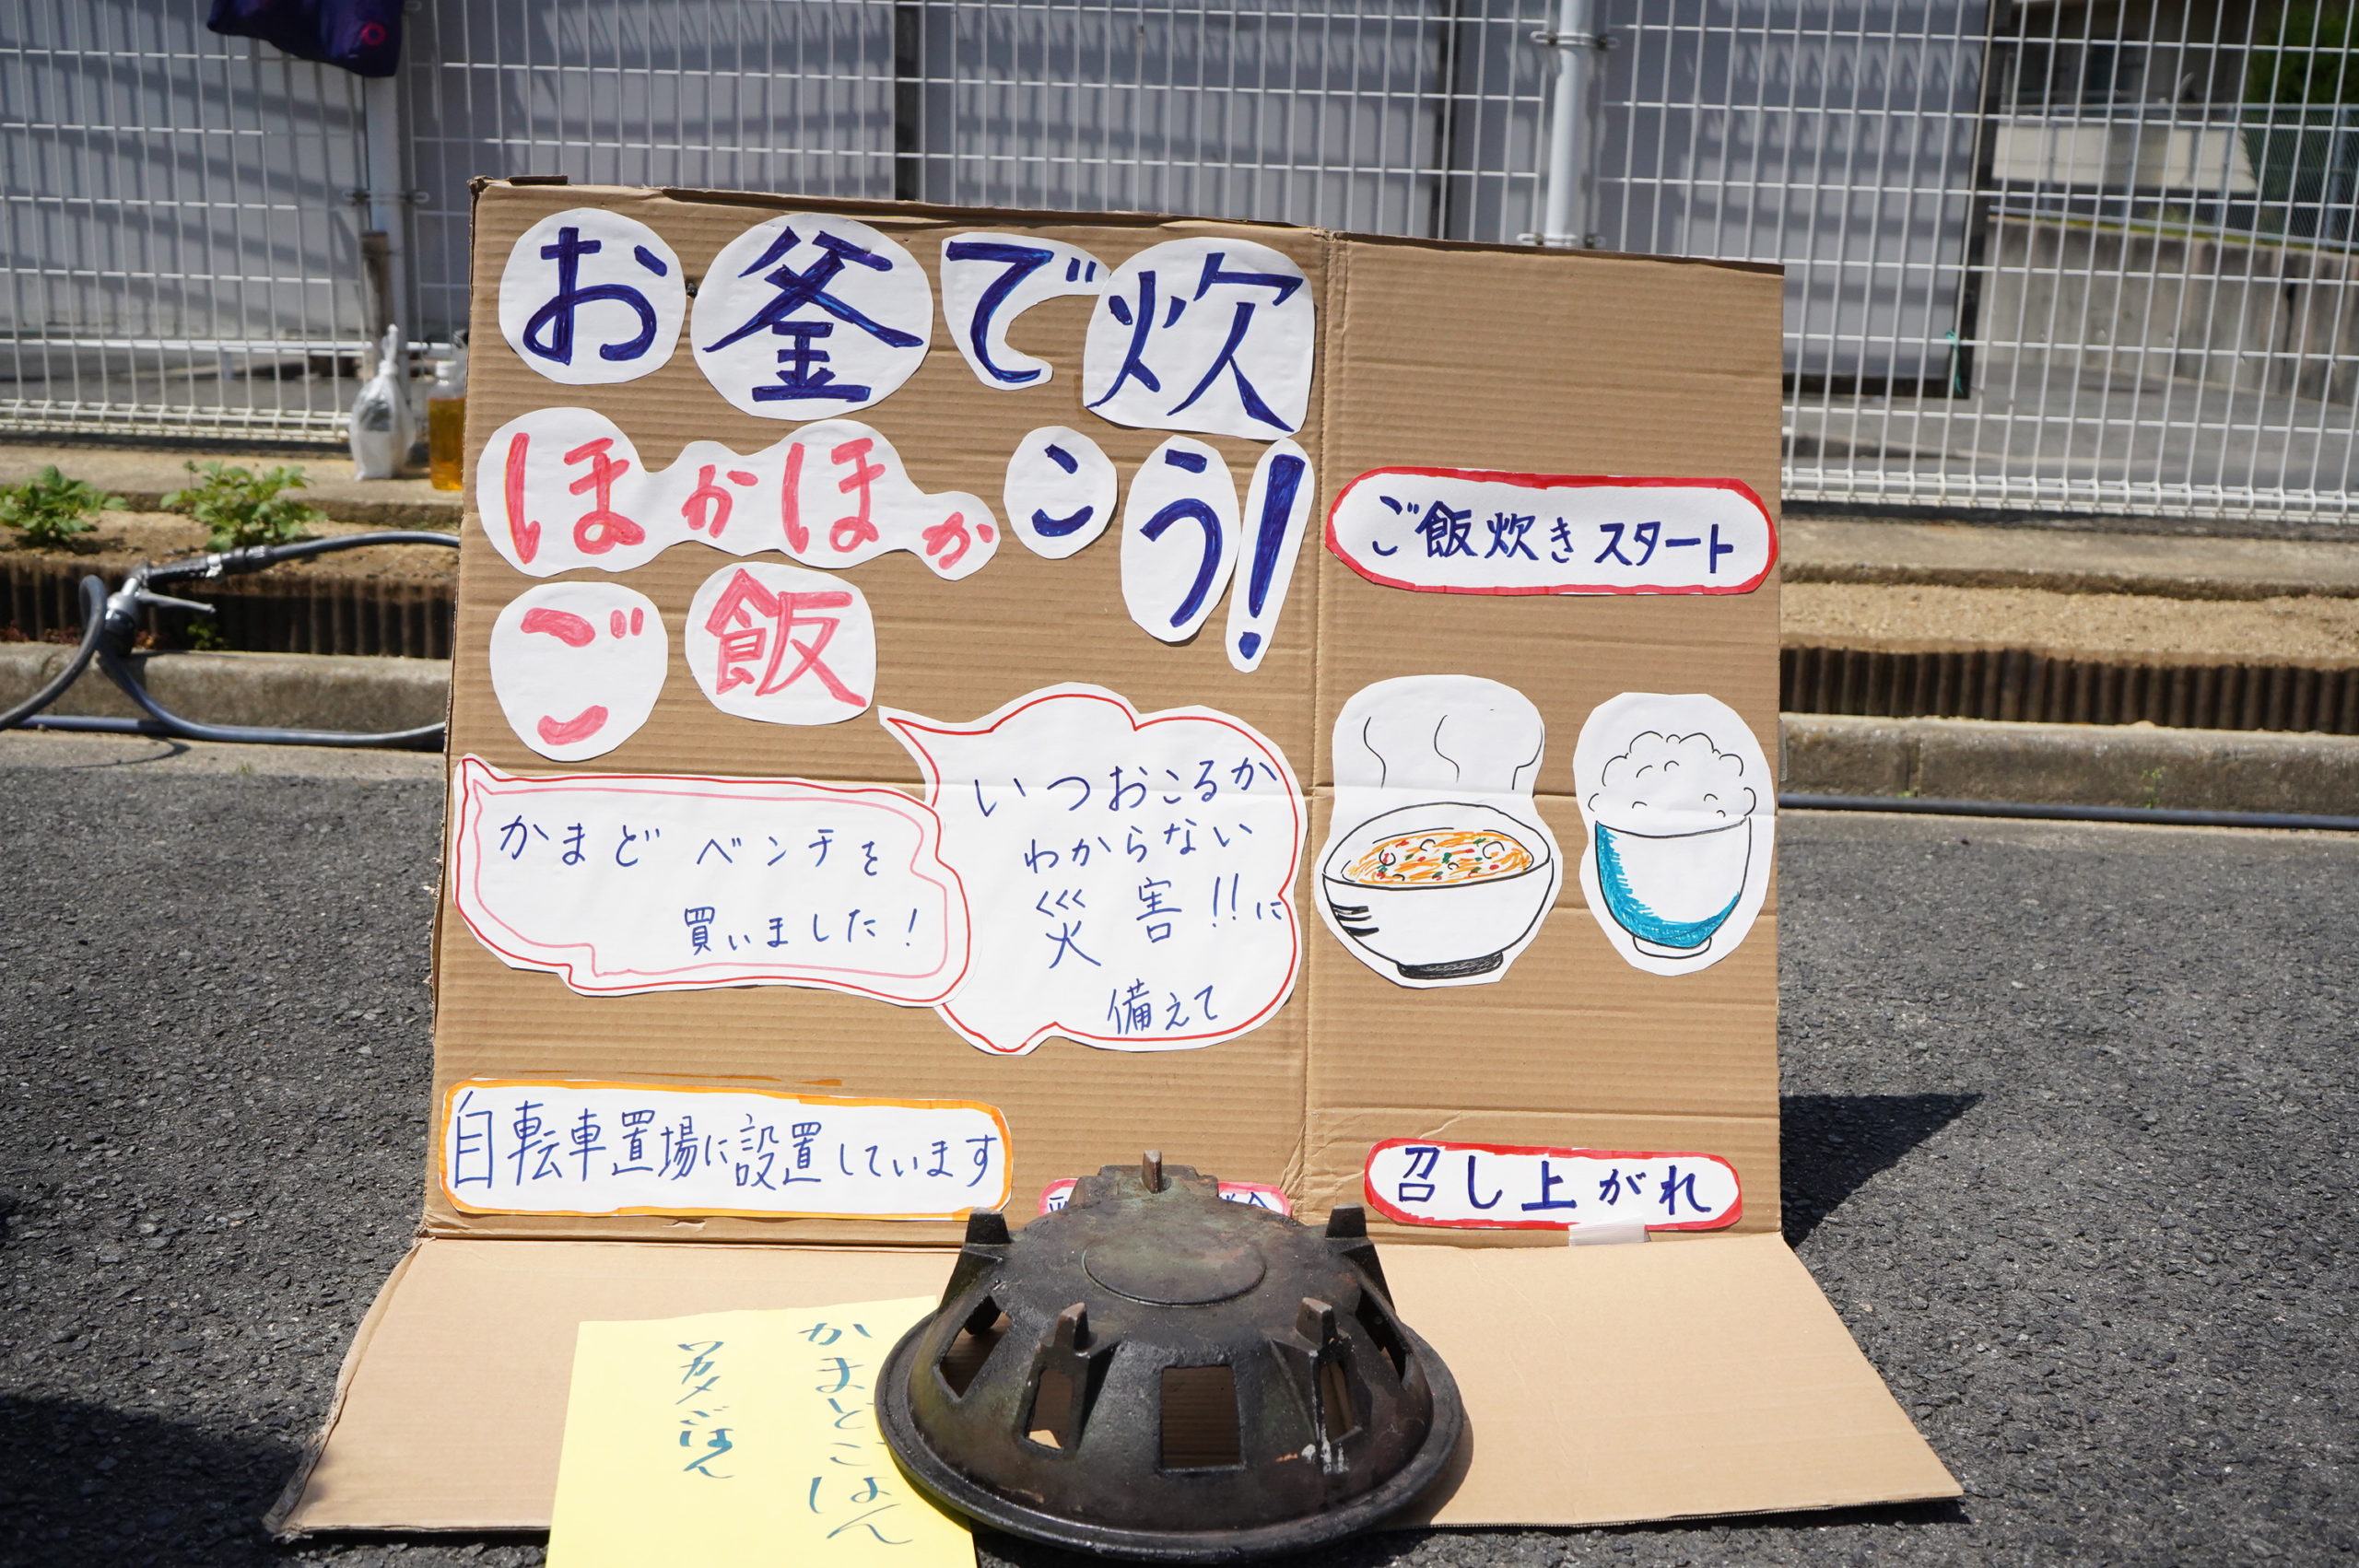 お釜で炊
ほかほかこう!
ご飯
かまどベンチを
買いました!
いつおこるか
わからない
災害!!に
備えて
自転車置場に設置しています
ご飯炊きスタート
召し上がれ
かまどごはん
ワカメごはん